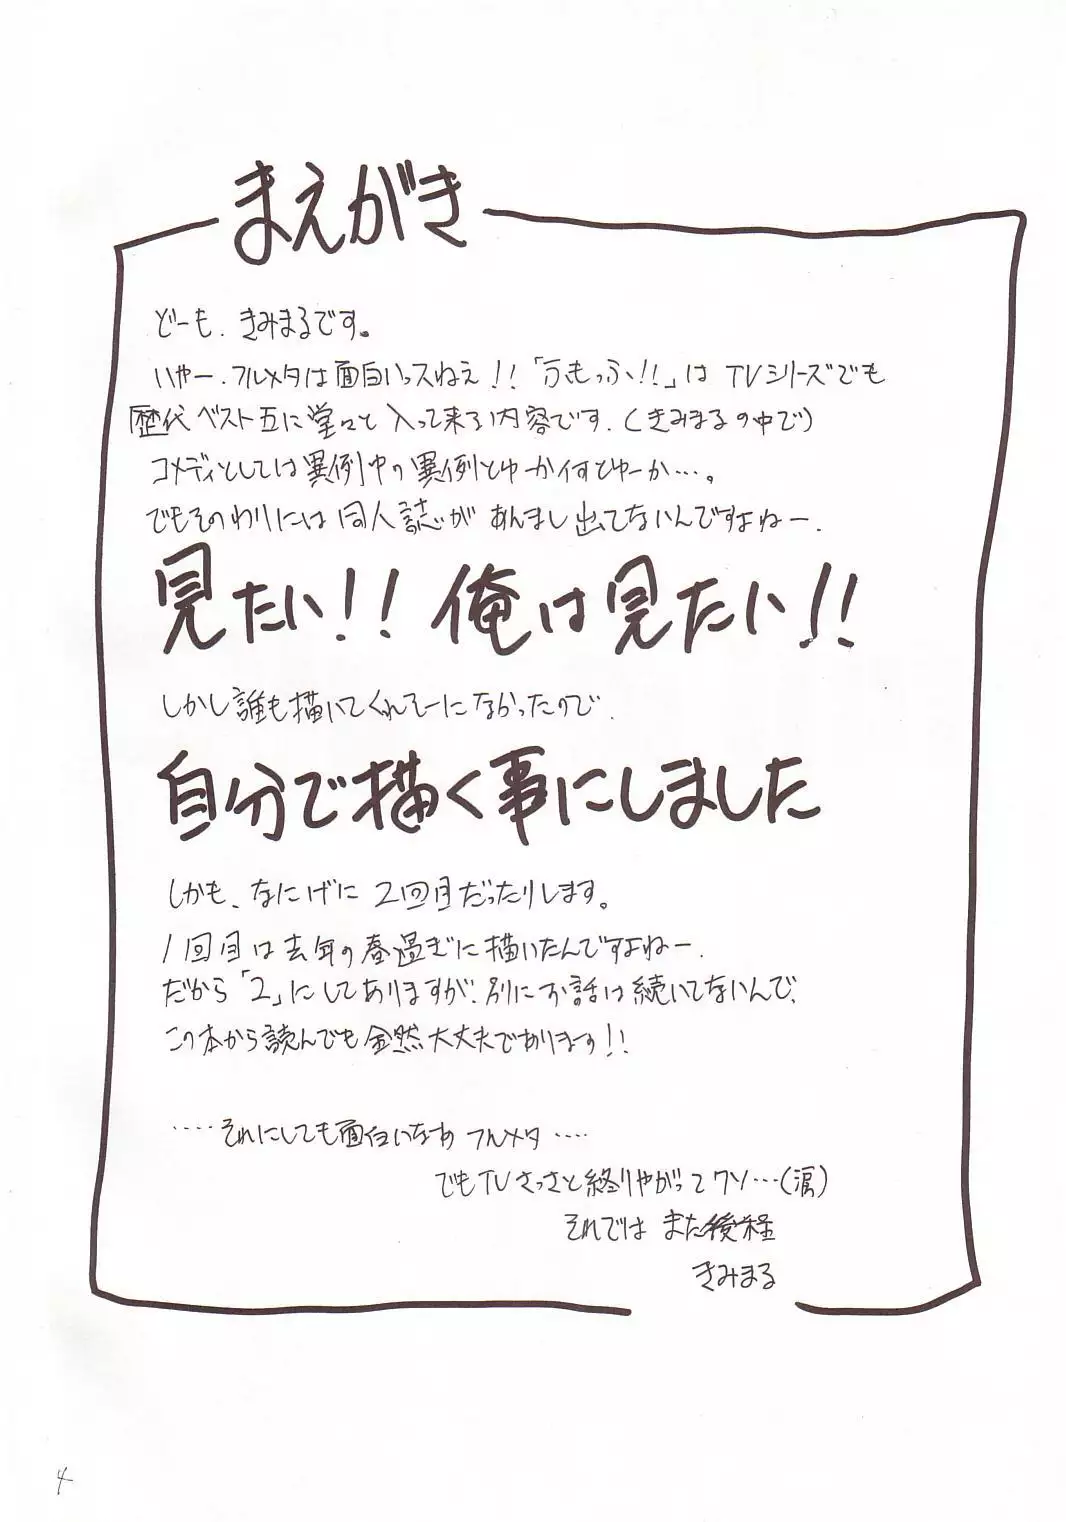 まえがき
どーも、きみまるです。
いやー、フルメタは面白いっスねえ!!「ふもっふ!!」はTVシリーズでも
歴代ベスト五に堂々と入って来る内容です。(きみまるの中で)
コメディとしては異例中の異例とゆーか何とゆーか…。
でもそのわりには同人誌があんまし出てないんですよねー。
見たい!!俺は見たい!!
しかし誰も描いてくれそーになかったので、
自分で描く事にしました
しかも、なにげに2回目だったりします。
1回目は去年の春過ぎに描いたんですよねー。
だから「2」にしてありますが、別にお話は続いてないんで、
この本から読んでも全然大丈夫であります!!
……それにしても面白いなあ フルメタ……
でもTVさっさと終りやがってクソ…(涙)
それでは また後程
きみまる
4